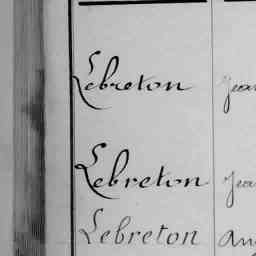 Lebreton Jea
Lebreton Jea
Lebreton Ang